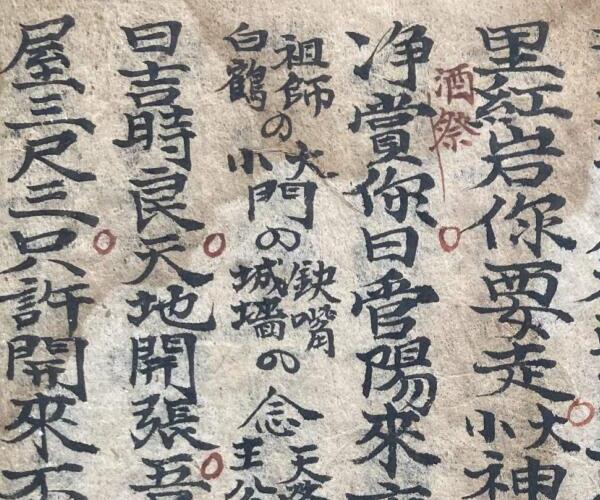 里紅岩你要走大小神
酒祭
净賞你日官陽來
祖師白鶴の大小門の缺嘴城墻の念
日吉時良天地開張吾
屋三尺三只許開來不